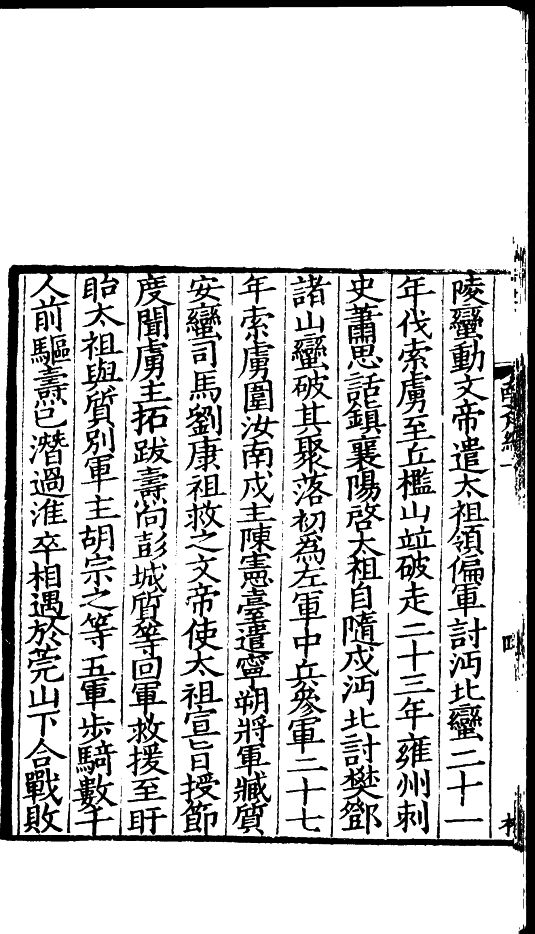 陵蠻動文帝遣太祖領偏軍討沔北蠻二十一
年伐索虜至丘檻山竝破走二十三年雍州刺
史蕭思話鎮襄陽啓太祖自隨戍沔北討樊鄧
諸山蠻破其聚落初爲左軍中兵參軍二十七
年索虜圍汝南戍主陳憲臺遣寧朔將軍臧質
安蠻司馬劉康祖救之文帝使太祖宣旨授節
度聞虜主拓跋燾向彭城質等回軍救援至盱
眙太祖與質別軍主胡宗之等五軍步騎數千
人前驅燾已潛過淮卒相遇於莞山下合戰敗